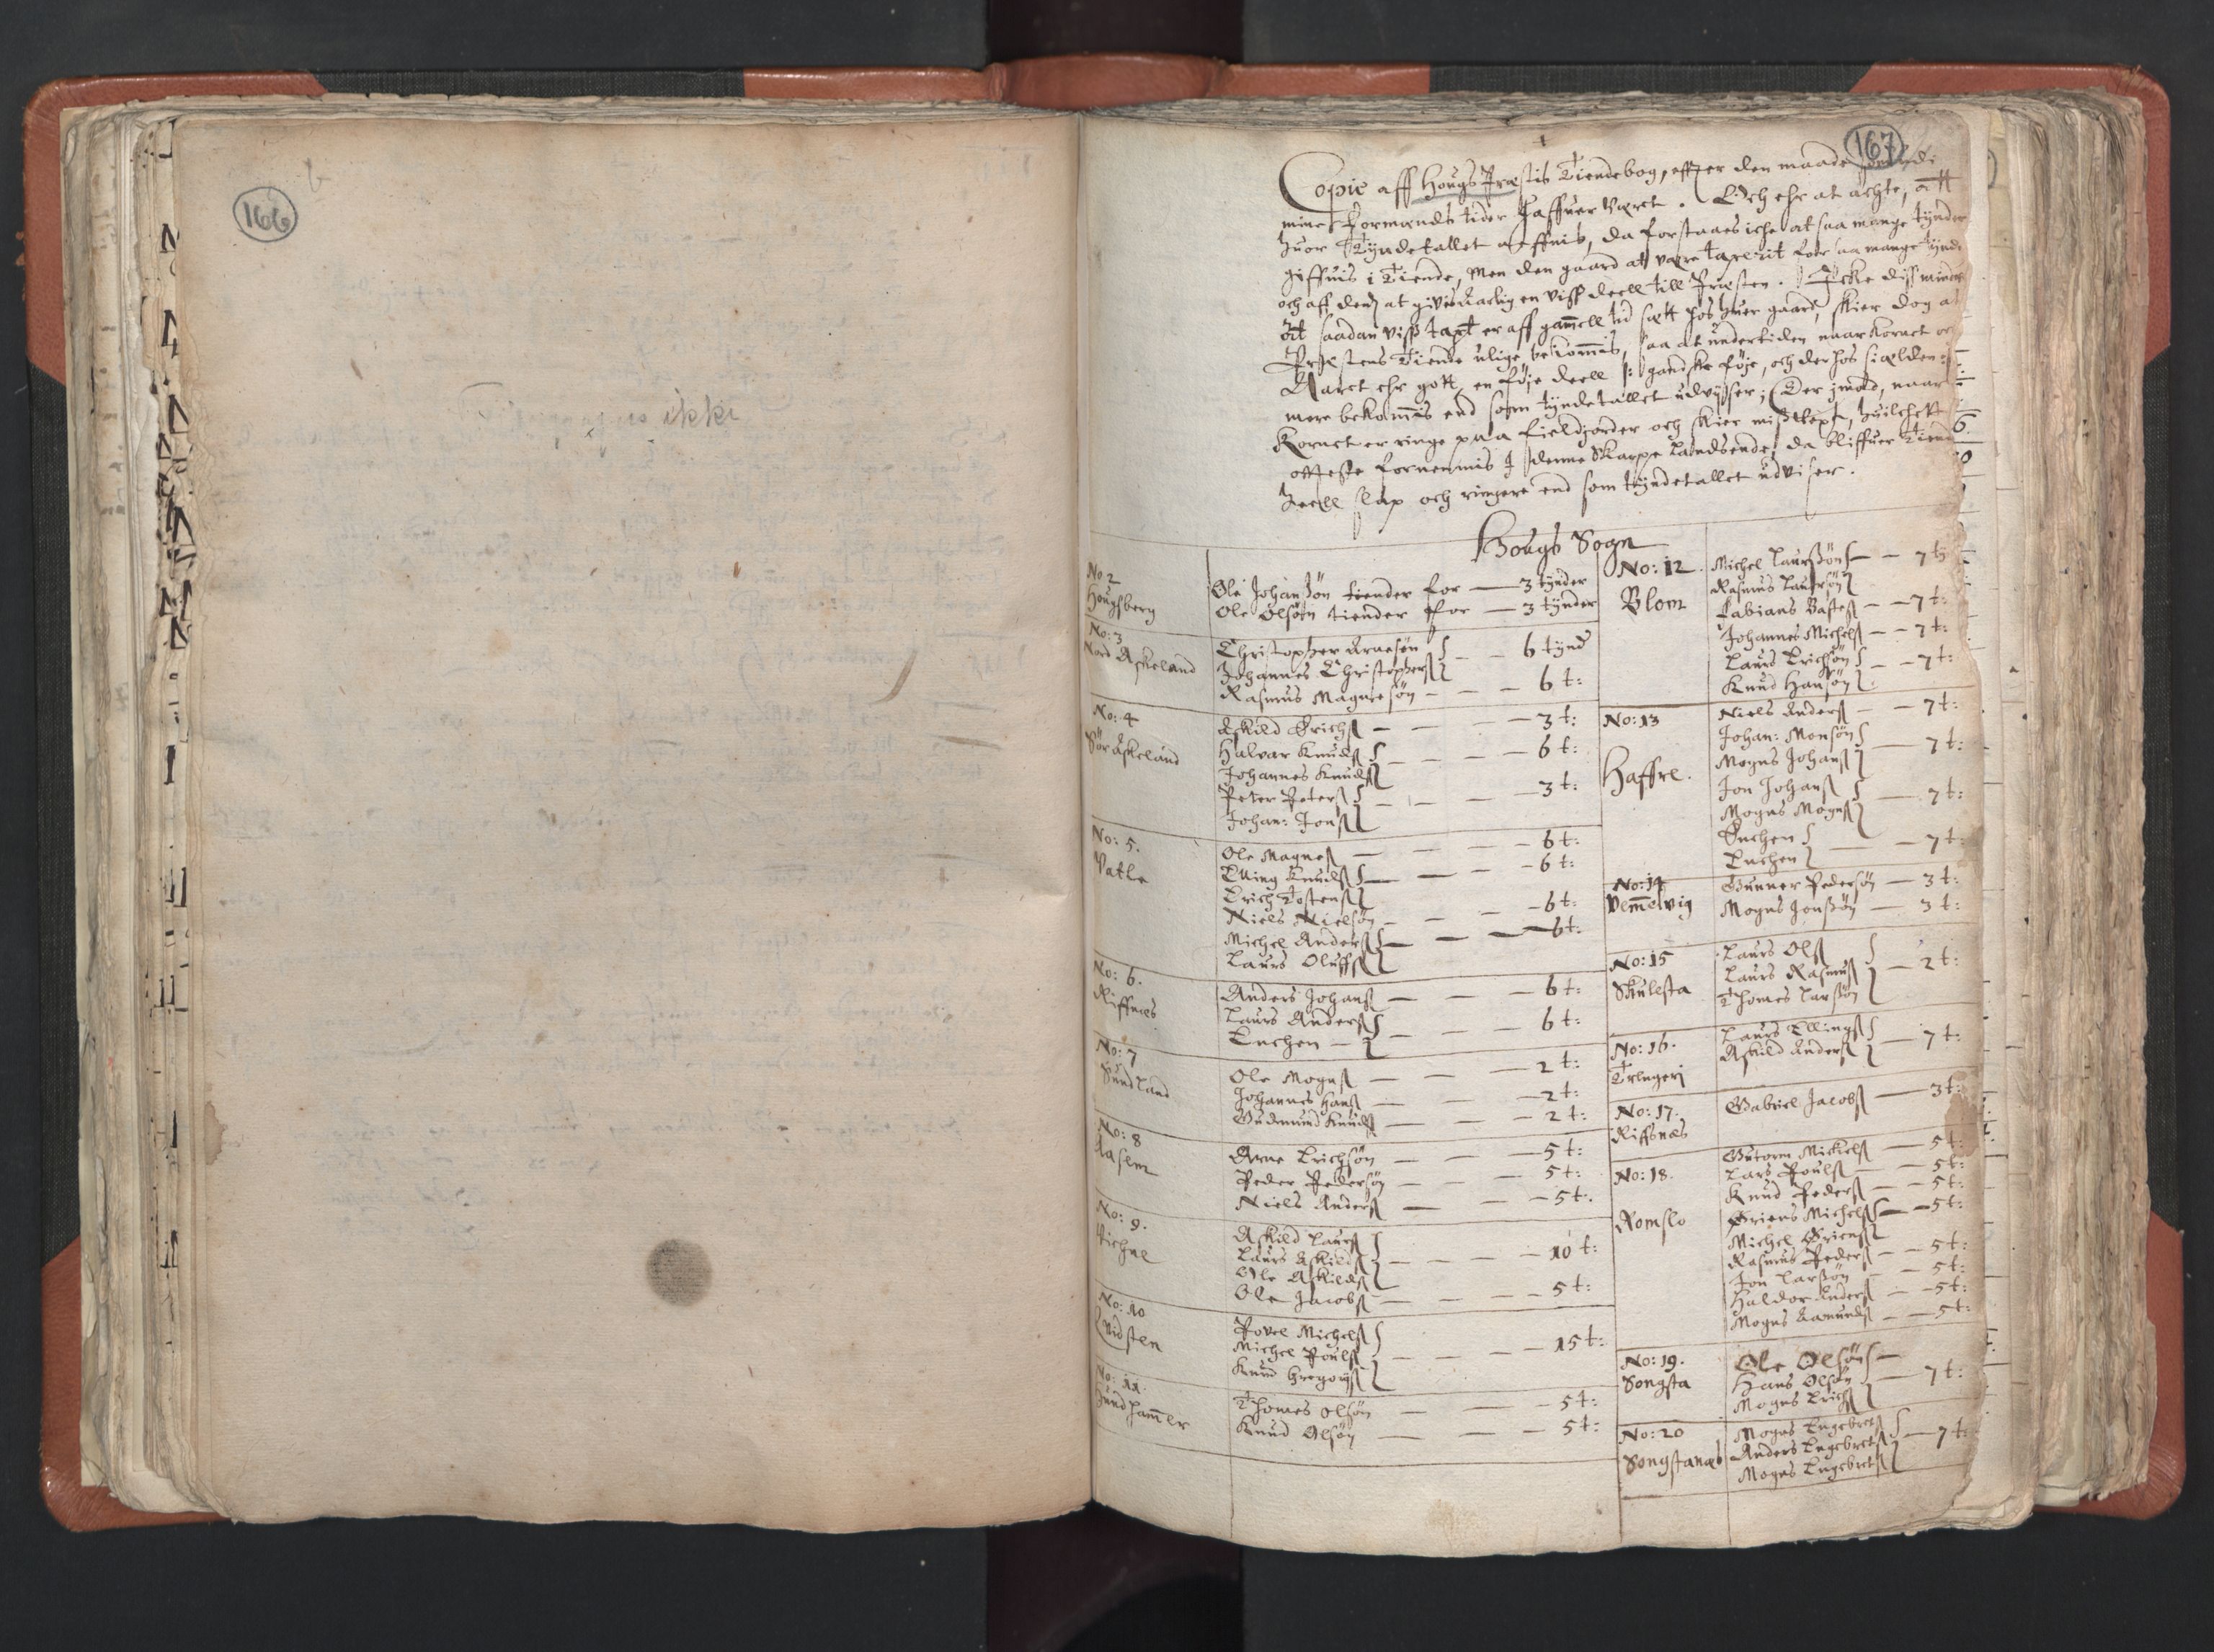 166
ikke
167
Copie aff Hougs Præstis Tiendebog, effter den maade som udi
mine Formænds tider haffuer været. Och ehr at achte, att
huor Tyndetallet neffnis, da forstaaes iche at saa mange tynder
giffuis i Tiende, Men den gaard at være taxerit for saa mange tynder
och aff dend at givis Aarlig en viss deell till Præsten. Icke diss minder
At saadan viss taxt er aff gammell tid satt hos huer gaard, skier dog at
Præstens Tiende ulige bekommis, saa at undertiden naar Kornet och
Aaret ehr gott, en føje deell /: gandske føje, och der hos sielden :/
mere bekommis end som tyndetallet udvisser; Der imod, naar
Kornet er ringe paa fieldjorder och skier mißvext, huilchet
offteste fornemmis i denne skarpe landsende, da bliffuer Tiend
heell slap och ringere end som tyndetallet udviser.
Hougs Sogn
No 2
Hougsberg
Ole Johansøn tiender for — 3 tynder
Ole Olsøn tiender for — 3 tynder
No: 3
Nord Askeland
Christopher Arnesøn
Johannes Christophers — 6 tynd
Rasmus Magnesøn — 6 t:
No: 4
Sør Askeland
Askild Erichs — 3 t:
Halvar Knuds
Johannes Knuds — 6 t:
Peter Peters
Johan: Jons — 3 t:
No: 5.
Vatle
Ole Magnes — 6 t:
Elling Knuds — 6 t:
Erich Tostens
Niels Nielsøn — 6 t:
Michel Anders — 6 t:
Laurs Oluffs
No: 6.
Riffnes
Anders Johans — 6 t:
Laurs Anders — 6 t:
Enchen
No: 7
Sundland
Ole Mogns — 2 t:
Johannes Hans — 2 t:
Gudmund Knuds — 2 t:
No: 8
Aasem
Arne Erichsøn — 5 t:
Peder Pedersøn — 5 t:
Niels Anders — 5 t:
No: 9.
Askild Laurs
Laurs Askilds — 10 t:
Ole Askilds
Ole Jacobs — 5 t:
No: 10
Qvidsten
Povel Michels
Michel Pouls — 15 t:
Knud Gregoris
No: 11
Hundhammer
Thomes Olsøn — 5 t:
Knud Olsøn — 5 t:
No: 12.
Blom
Michel Laurssøn — 7 ty
Rasmus Laursøn
Fabians Bastes — 7 t:
Johannes Michels — 7 t:
Laurs Erichsøn — 7 t:
Knud Hansøn
No: 13
Haffre.
Niels Anders — 7 t:
Johan: Monsøn
Mogns Johans — 7 t:
Jon Johans
Mogns Mogns — 7 t:
Enchen
Enchen — 7 t:
No: 14
Vemmelvig
Gunner Pedersøn — 3 t:
Mogns Jonssøn — 3 t:
No: 15
Skulesta
Laurs Ols
Laurs Rasmus — 2 t:
Thomes Larssøn
No: 16.
Trengeri
Laurs Ellings
Askild Anders — 7 t:
No: 17.
Riffsnæs
Gabriel Jacobs — 3 t:
No: 18.
Romslo
Gutorm Mickels — 5 t:
Lars Pouls — 5 t:
Knud Peders — 5 t:
Griens Michels — 5 t:
Michel Griens
Rasmus Peders — 5 t:
Jon Larssøn — 5 t:
Haldor Anders — 5 t:
Mogns Aamunds — 5 t:
No: 19.
Songsta
Ole Olsøn
Hans Olsøn — 7 t:
Mogns Erichs
No: 20
Songstanæs
Mogns Engebrets
Anders Engebrets — 7 t:
Mogns Engebrets